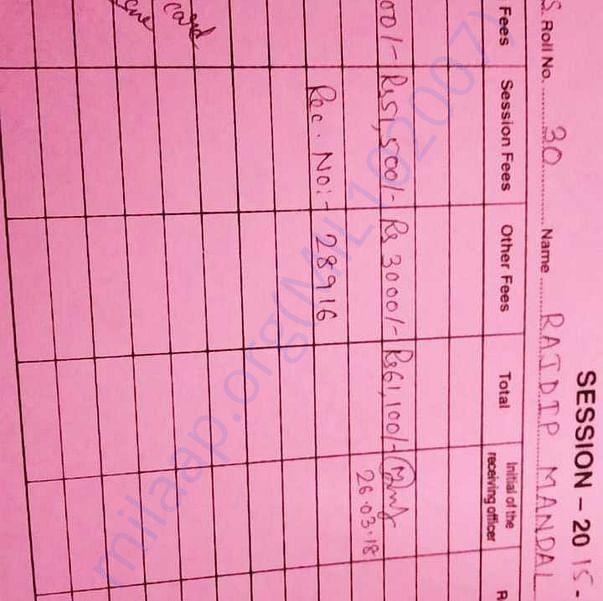 SESSION – 20 15 -
S. Roll No. 30 Name RAJDIP MANDAL
Fees Session Fees Other Fees Total Initial of the receiving officer R
00/- Rs 51,500/- Rs 3000/- Rs 61,100/-
26.03.18
Rec. No:- 28916
card
milaap.org(MIL192007)